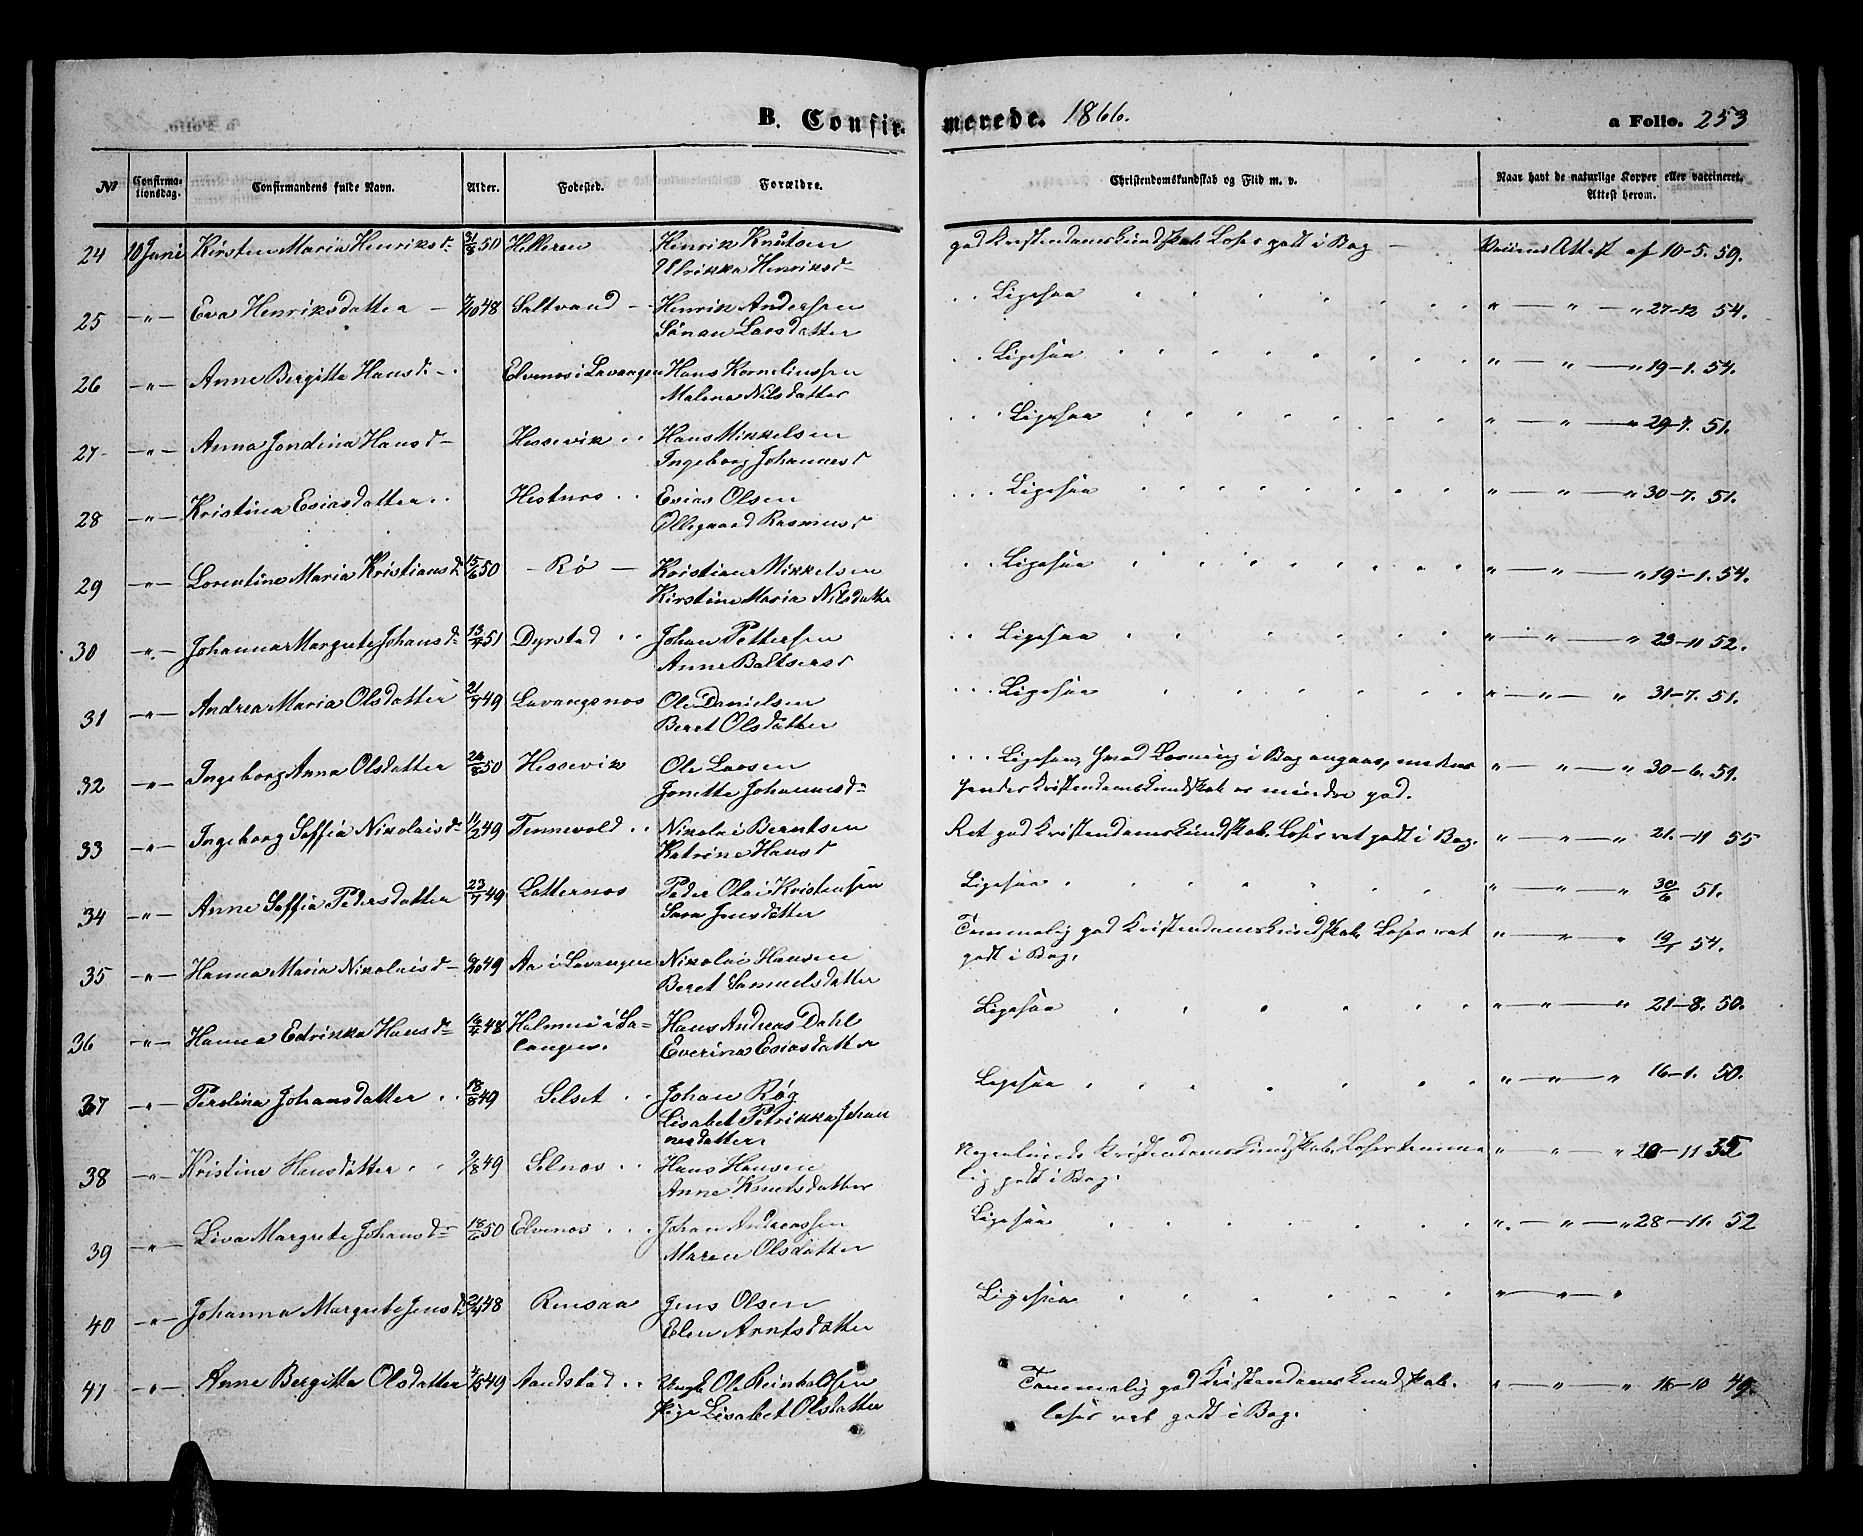 B. Confirmerede. 1866.
a Folio. 253
№ Confirmationsdag. Confirmandens fulde Navn. Alder. Fødested. Forældre. Christendomskundskab og Flid m. v. Naar havt de naturlige Kopper eller vaccineret. Attest herom.
24 10 Juni Kirsten Maria Henriksd. 31/8 50 Helleren Henrik Knutsen god Kristendomskundskab. Læser godt i Bog — Vaccins Attest af 10-5. 59.
Ulrikka Henriksd
25 -"- Eva Henriksdatter - 7/10 48 Saltvand - Henrik Andersen Ligesaa " — " — " 27-12 54.
Larsdatter
26 -"- Anne Bergitte Hansd. - Elvenes i Lavangen Hans Korneliussen Ligesaa " — " — " 19-1. 54.
Malena Nilsdatter
27 -"- Anna Jondina Hansd - Hessevik Hans Mikkelsen Ligesaa " — " — " 29-7. 51.
Ingeborg Johannesd
28 -"- Kristina Esiasdatter Hestnes Esias Olsen Ligesaa " — " — " 30-7. 51.
Ollegaard Rasmusd
29 -"- Lorentine Maria Kristiansd. 15/6 50 - Rø - Kristian Mikkelsen Ligesaa " — " — " 19-1. 54.
Kirstine Maria Nilsdatter
30 -"- Johanna Margrete Johansd 13/4 51 Dyrstad Johan Pettersen Ligesaa " — " — " 23-11 52.
Anne Baltsersd
31 -"- Andrea Maria Olsdatter 21/7 49 Lavangsnes Ole Danielsen Ligesaa " — " — " 31-7. 51.
Beret Olsdatter
32 -"- Ingeborg Anna Olsdatter 50 Hessevik Ole Larsen Ligesaa, hvad Læsning i Bog angaar, medens " — " — " 30-6. 51.
Jonette Johannesd hendes Kristendomskundskab er mindre god.
33 -"- Ingeborg Soffia Nikolaisd 11/2 49 Tennevold Nikolai Berntsen Ret god Kristendomskundskab. Læser ret godt i Bog. " — " — " 21.-11 55
Katrine Hansd
34 -"- Anne Soffia Pedersdatter 23/7 49 Latternes Peder Olai Kristensen Ligesaa " — " — " 30/6 51.
Sara Jensdatter
35 -"- Hanna Maria Nikolaisd - 49 Aa i Lavangen Nikolai Hansen Temmelig god Kristendomskundskab. Læser ret " — " — " 19/1 54.
Beret Samuelsdatter godt i Bog.
36 -"- Hanna Edrikka Hansd 16/4 48 i Salangen. Hans Andreas Dahl Ligesaa " — " — " 21-8. 50.
Everina Esiasdatter
37 -"- Perolina Johansdatter 18/8 49 Selset Johan Røg Ligesaa " — " — " 16-1. 50.
Lisabet Petrikka Johan
nesdatter.
38 -"- Kristine Hansdatter 9/8 49 Selnes Hans Hansen Nogenlunde Kristendomskundskab. Læser temme " — " — " 20-11 35
Anne Knutsdatter lig godt i Bog.
39 -"- Liva Margrete Johansd 18/6 50 Elvenes Johan Andreassen Ligesaa " — " — " 28-11. 52
Maren Olsdatter
40 -"- Johanna Margrete Jensd. 48 Rensaa Jens Olsen Ligesaa " — " — "
Elen Arntsdatter
41 -"- Anne Bergitta Olsdatter 49 Aandstad Ungk. Ole Reinholdsen Temmelig god Kristendomskundskab. " — " — " 16-10 49.
Pige Lisabet Olsdatter læser ret godt i Bog.